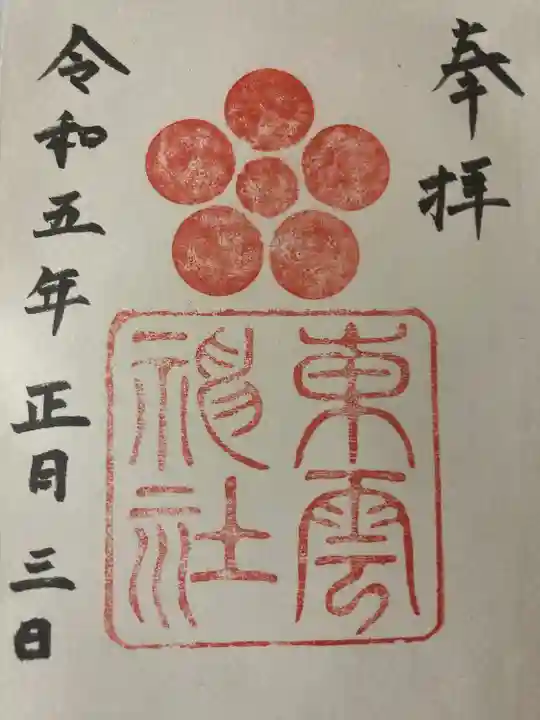 奉拝
東雲
神社
令和五年 正月 三日